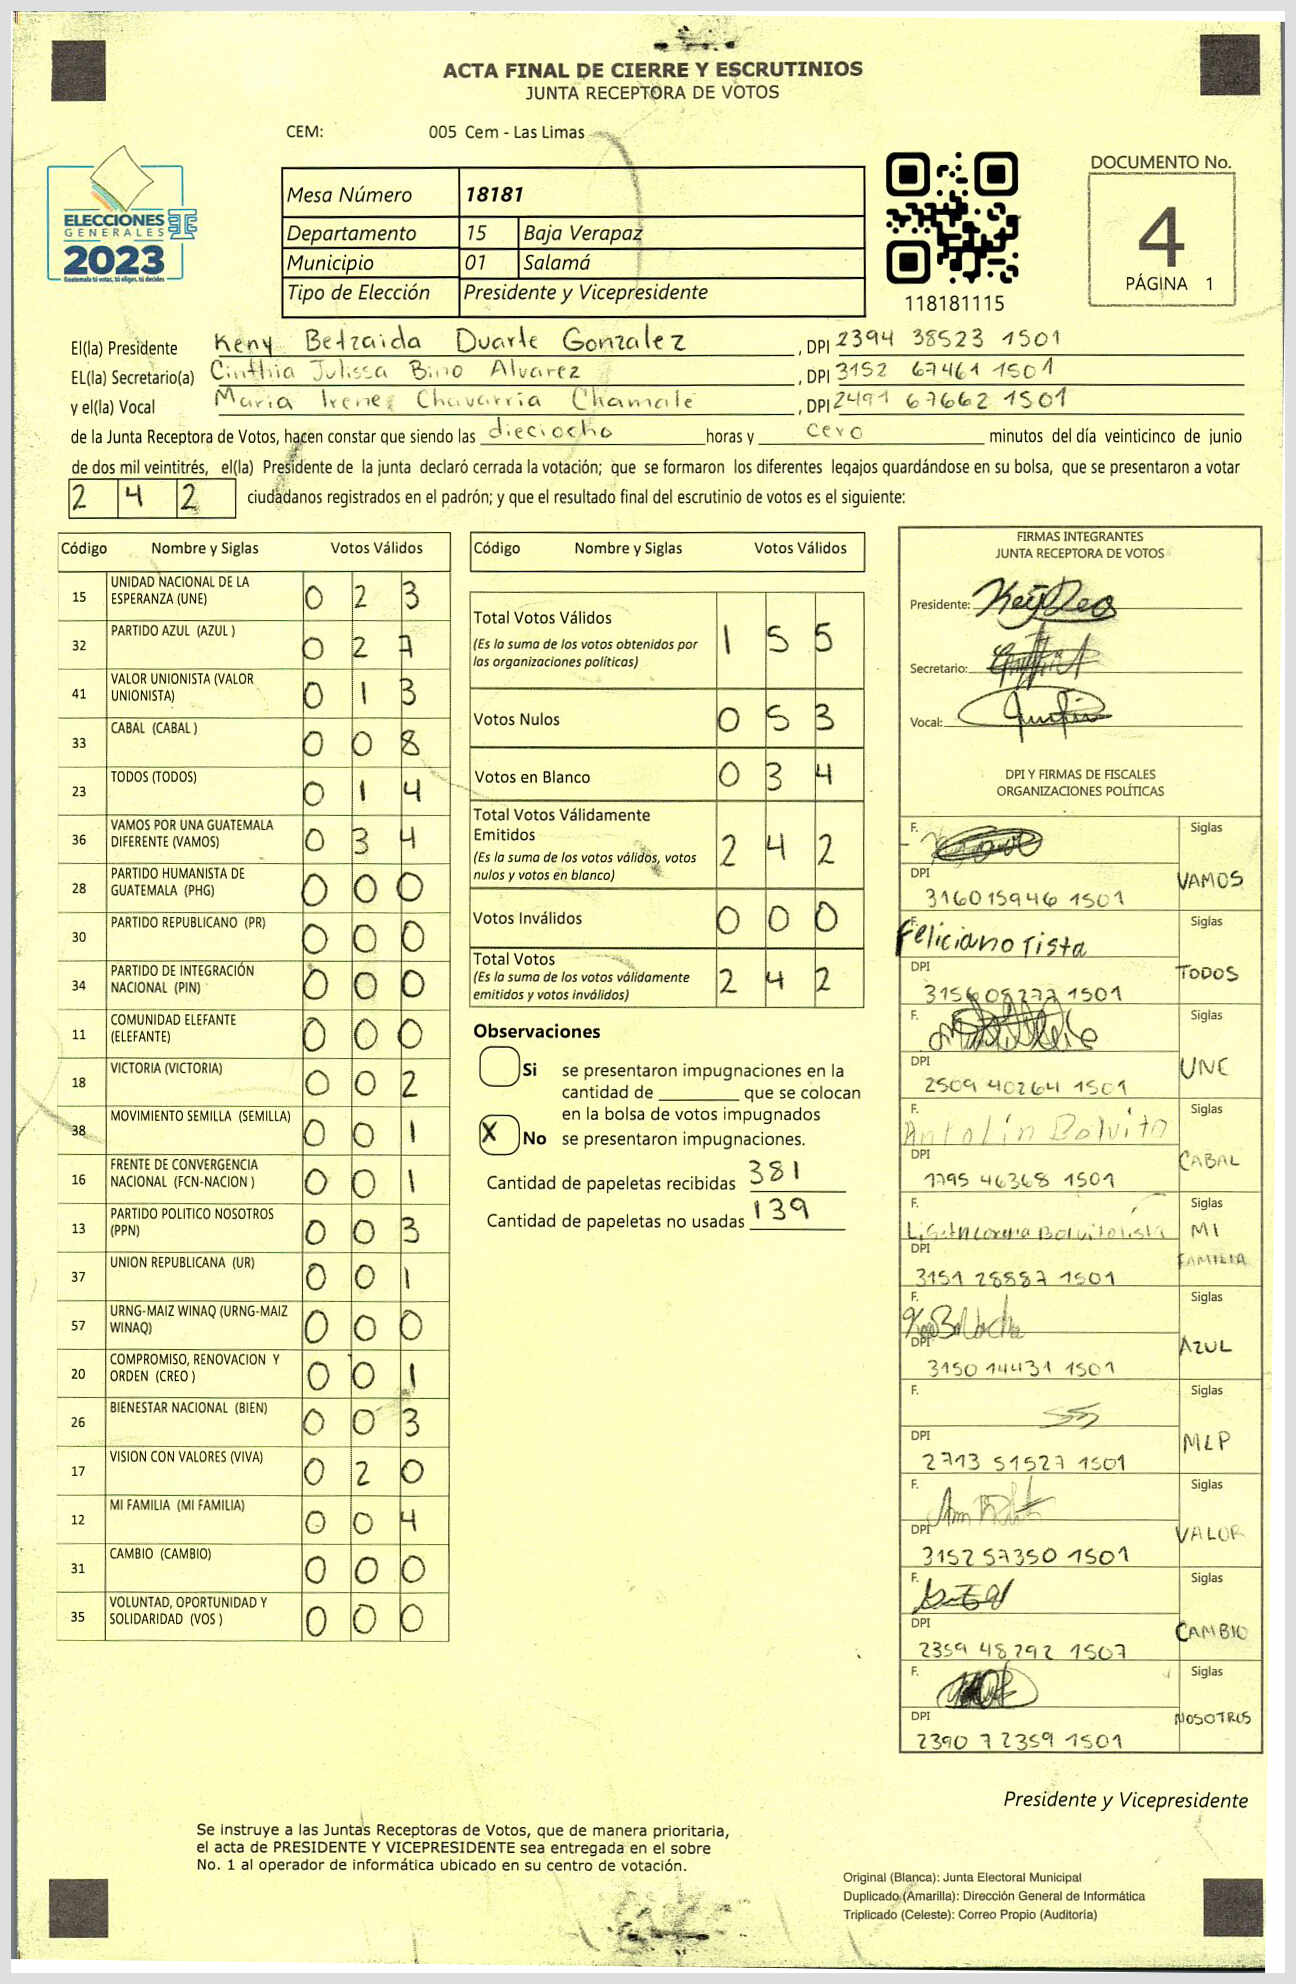 ACTA FINAL DE CIERRE Y ESCRUTINIOS
JUNTA RECEPTORA DE VOTOS
CEM: 005 Cem - Las Limas
ELECCIONES
GENERALES
2023
Guatemala tú votas, tú eliges, tú decides
Mesa Número 18181
Departamento 15 Baja Verapaz
Municipio 01 Salamá
Tipo de Elección Presidente y Vicepresidente
118181115
DOCUMENTO No.
4
PÁGINA 1
El(la) Presidente Keny Betzaida Duarte Gonzalez, DPI 2394 38523 1501
EL(la) Secretario(a) Cinthia Julissa Bino Alvarez, DPI 3152 67461 1501
y el(la) Vocal Maria Irene Chavarria Chamale, DPI 2491 67662 1501
de la Junta Receptora de Votos, hacen constar que siendo las dieciocho horas y cero minutos del día veinticinco de junio
de dos mil veintitrés, el(la) Presidente de la junta declaró cerrada la votación; que se formaron los diferentes legajos guardándose en su bolsa, que se presentaron a votar
2 4 2 ciudadanos registrados en el padrón; y que el resultado final del escrutinio de votos es el siguiente:
Código Nombre y Siglas Votos Válidos
15 UNIDAD NACIONAL DE LA ESPERANZA (UNE) 0 2 3
32 PARTIDO AZUL (AZUL ) 0 2 7
41 VALOR UNIONISTA (VALOR UNIONISTA) 0 1 3
33 CABAL (CABAL ) 0 0 8
23 TODOS (TODOS) 0 1 4
36 VAMOS POR UNA GUATEMALA DIFERENTE (VAMOS) 0 3 4
28 PARTIDO HUMANISTA DE GUATEMALA (PHG) 0 0 0
30 PARTIDO REPUBLICANO (PR) 0 0 0
34 PARTIDO DE INTEGRACIÓN NACIONAL (PIN) 0 0 0
11 COMUNIDAD ELEFANTE (ELEFANTE) 0 0 0
18 VICTORIA (VICTORIA) 0 0 2
38 MOVIMIENTO SEMILLA (SEMILLA) 0 0 1
16 FRENTE DE CONVERGENCIA NACIONAL (FCN-NACION ) 0 0 1
13 PARTIDO POLITICO NOSOTROS (PPN) 0 0 3
37 UNION REPUBLICANA (UR) 0 0 1
57 URNG-MAIZ WINAQ (URNG-MAIZ WINAQ) 0 0 0
20 COMPROMISO, RENOVACION Y ORDEN (CREO ) 0 0 1
26 BIENESTAR NACIONAL (BIEN) 0 0 3
17 VISION CON VALORES (VIVA) 0 2 0
12 MI FAMILIA (MI FAMILIA) 0 0 4
31 CAMBIO (CAMBIO) 0 0 0
35 VOLUNTAD, OPORTUNIDAD Y SOLIDARIDAD (VOS ) 0 0 0
Código Nombre y Siglas Votos Válidos
Total Votos Válidos 1 5 5
(Es la suma de los votos obtenidos por
las organizaciones políticas)
Votos Nulos 0 5 3
Votos en Blanco 0 3 4
Total Votos Válidamente
Emitidos 2 4 2
(Es la suma de los votos válidos, votos
nulos y votos en blanco)
Votos Inválidos 0 0 0
Total Votos 2 4 2
(Es la suma de los votos válidamente
emitidos y votos inválidos)
Observaciones
Si se presentaron impugnaciones en la
cantidad de ________ que se colocan
en la bolsa de votos impugnados
X No se presentaron impugnaciones.
Cantidad de papeletas recibidas 381
Cantidad de papeletas no usadas 139
FIRMAS INTEGRANTES
JUNTA RECEPTORA DE VOTOS
Presidente:
Secretario:
Vocal:
DPI Y FIRMAS DE FISCALES
ORGANIZACIONES POLÍTICAS
F. Siglas
DPI VAMOS
316015946 1501
F. Siglas
Feliciano Tista
DPI TODOS
315608277 1501
F. Siglas
DPI UNE
2509 40264 1501
F. Siglas
Antolín Bolvito
DPI CABAL
1795 46368 1501
F. Siglas
MI
DPI FAMILIA
3151 28887 1501
F. Siglas
DPI AZUL
3150 14431 1501
F. Siglas
DPI MLP
2713 51527 1501
F. Siglas
DPI VALOR
3152 57350 1501
F. Siglas
DPI CAMBIO
2359 48292 1507
F. Siglas
DPI NOSOTROS
2390 72359 1501
Presidente y Vicepresidente
Se instruye a las Juntas Receptoras de Votos, que de manera prioritaria,
el acta de PRESIDENTE Y VICEPRESIDENTE sea entregada en el sobre
No. 1 al operador de informática ubicado en su centro de votación.
Original (Blanca): Junta Electoral Municipal
Duplicado (Amarilla): Dirección General de Informática
Triplicado (Celeste): Correo Propio (Auditoría)